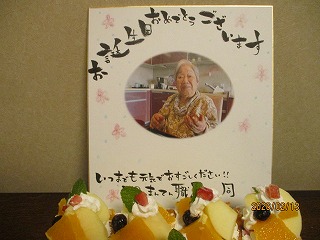 お誕生日おめでとうございます
いつまでも元気でおすごしください!!
まんてん職員一同
2023/02/13